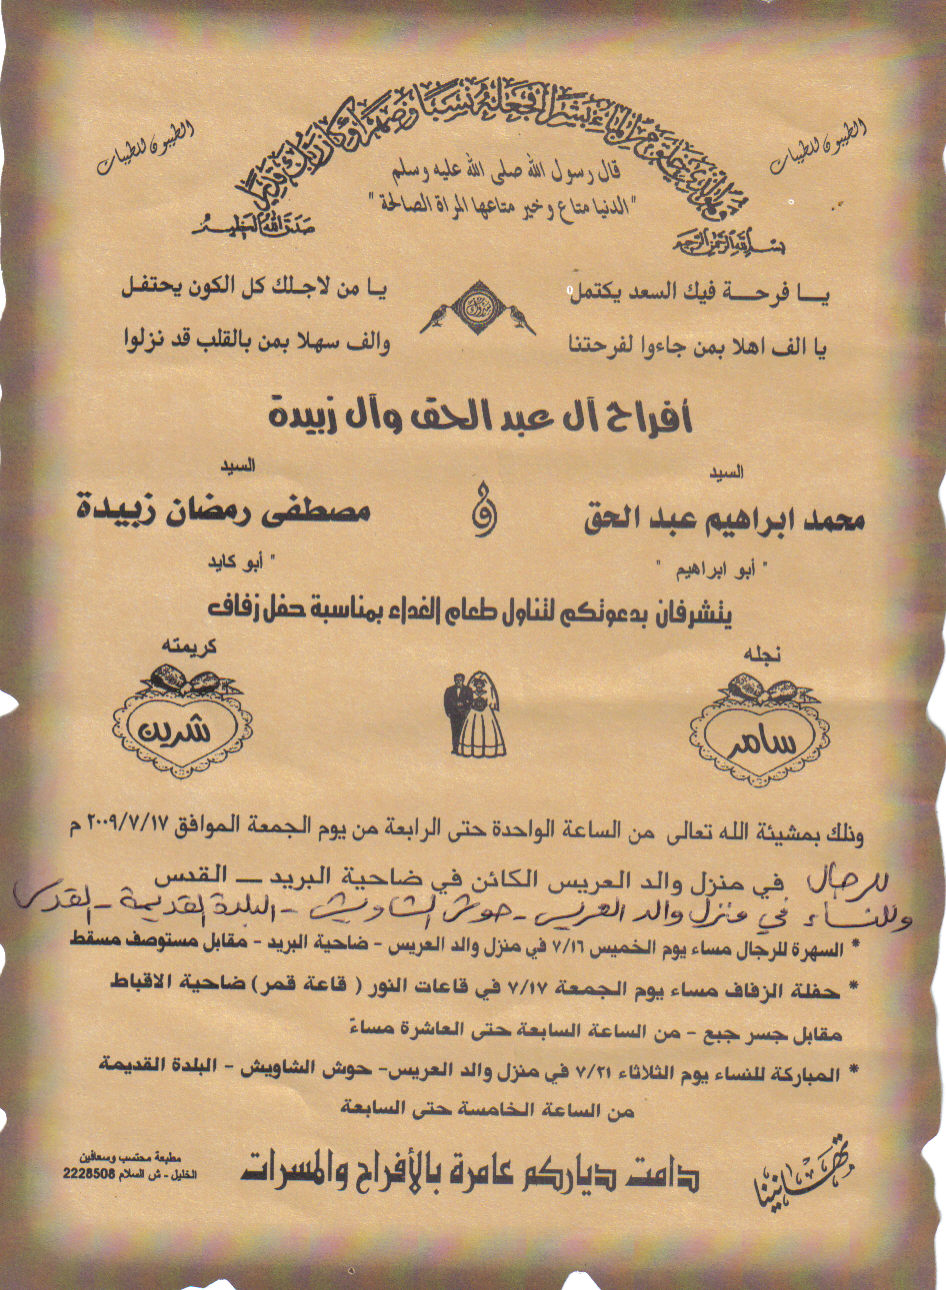 وهو الذي خلق من الماء بشرا فجعله نسبا وصهرا وكان ربك قديرا
الطيبون للطيبات
الطيبون للطيبات
قال رسول الله صلى الله عليه وسلم
"الدنيا متاع وخير متاعها المراة الصالحة"
بسم الله الرحمن الرحيم
صدق الله العظيم
يـــا فرحـــة فيك السعد يكتمل يـا من لاجـلـك كل الكون يحتفـل
مبروك
يا الف اهلا بمن جاءوا لفرحتنا والف سهـلا بمن بالقلب قد نزلوا
أفراح آل عبد الحق وآل زبيدة
السيد السيد
محمد ابراهيم عبد الحق و مصطفى رمضان زبيدة
" أبو ابراهيم " " أبو كايد
يتشرفان بدعوتكم لتناول طعام الغداء بمناسبة حفل زفاف
نجله كريمته
سامر شرين
وذلك بمشيئة الله تعالى من الساعة الواحدة حتى الرابعة من يوم الجمعة الموافق ٢٠٠٩/٧/١٧ م
للرجال في منزل والد العريس الكائن في ضاحية البريد ــ القدس
وللنساء في منزل والد العريس - حوش الشاويش - البلدة القديمة - القدس
* السهرة للرجال مساء يوم الخميس ٧/١٦ في منزل والد العريس - ضاحية البريد - مقابل مستوصف مسقط
* حفلة الزفاف مساء يوم الجمعة ٧/١٧ في قاعات النور ( قاعة قمر) ضاحية الاقباط
مقابل جسر جبع - من الساعة السابعة حتى العاشرة مساءً
* المباركة للنساء يوم الثلاثاء ٧/٢١ في منزل والد العريس- حوش الشاويش - البلدة القديمة
من الساعة الخامسة حتى السابعة
تهانينا
دامت دياركم عامرة بالأفراح والمسرات
مطبعة محتسب وسعافين
الخليل - ش السلام 2228508